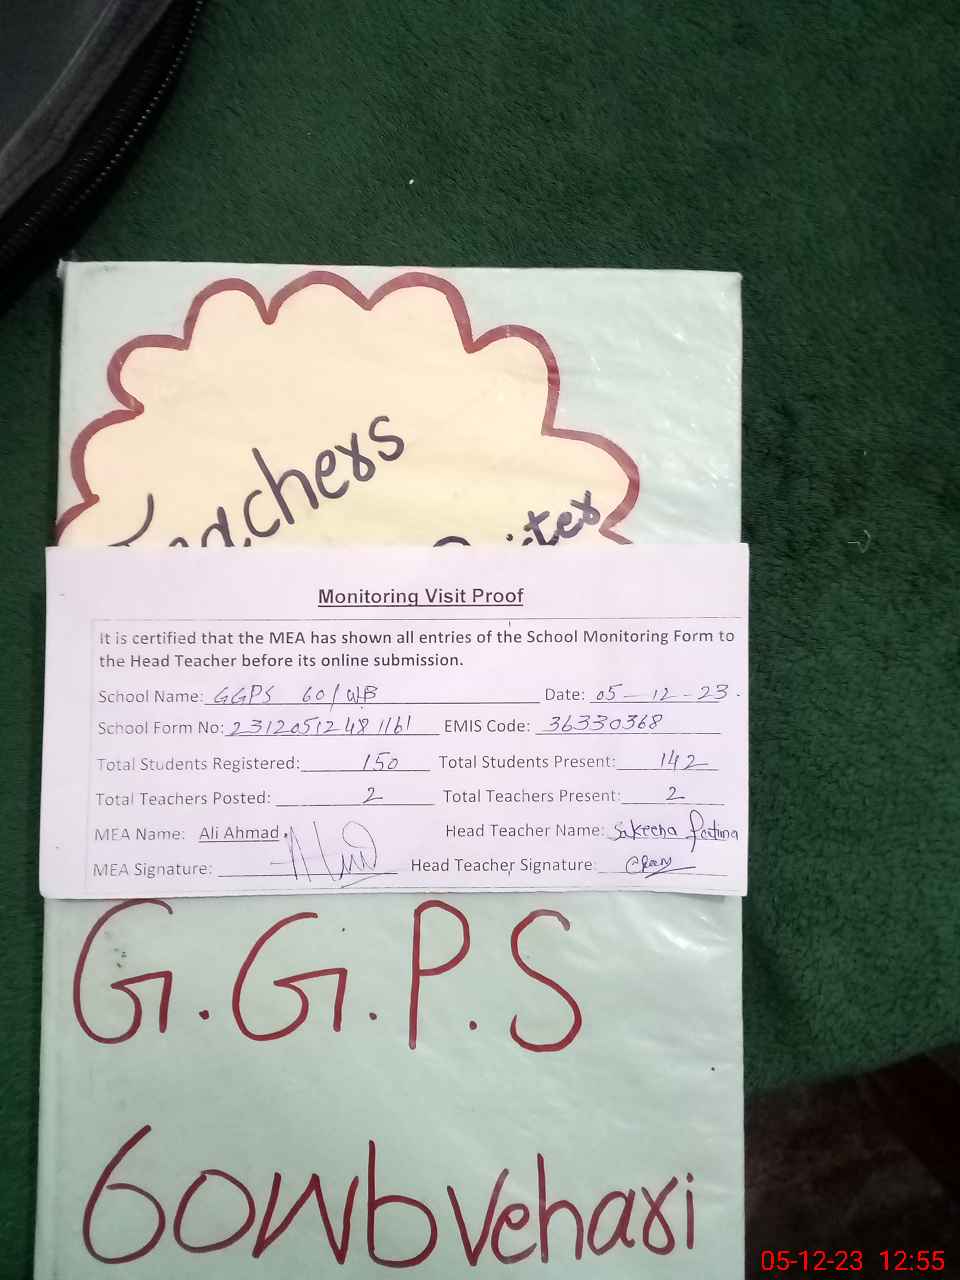 Teachers
Monitoring Visit Proof
It is certified that the MEA has shown all entries of the School Monitoring Form to
the Head Teacher before its online submission.
School Name: GGPS 60/WB Date: 05-12-23.
School Form No: 23120512481161 EMIS Code: 36330368
Total Students Registered: 150 Total Students Present: 142
Total Teachers Posted: 2 Total Teachers Present: 2
MEA Name: Ali Ahmad. Head Teacher Name: Sakeena Fatima
MEA Signature: Head Teacher Signature:
G.G.P.S
60Wb Vehari
05-12-23 12:55